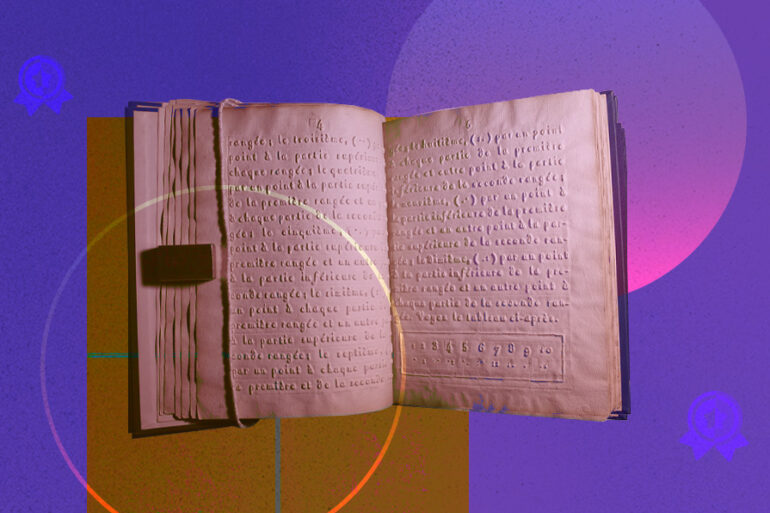 4
rangée; le troisième, par un
point à la partie
chaque rangée; le quatrième
par un point à la partie
de la première rangée et un
à chaque partie de la seconde
gée; le cinquième,
point à la partie
première rangée et un autre
à la partie inférieure de
conde rangée; le sixième,
un point à chaque partie
première rangée et un autre
à la partie supérieure de la
conde rangée; le septième,
par un point à chaque
première et de la seconde
le huitième, par un point
chaque partie de la première
rangée et autre point à la partie
inférieure de la seconde rangée;
neuvième, par un point à
partie inférieure de la première
rangée et un autre point à la par-
tie supérieure de la seconde ran-
le dixième, par un point
la partie inférieure de la pre-
mière rangée et un autre point à
chaque partie de la seconde ran-
gée. Voyez le tableau ci-après.
1 2 3 4 5 6 7 8 9 10